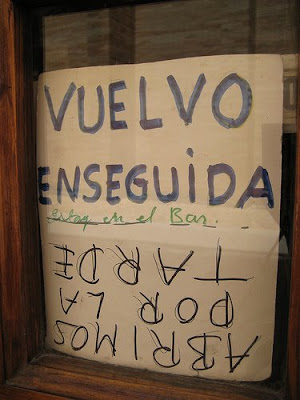 VUELVO
ENSEGUIDA
estoy en el Bar.
ABRIMOS
POR LA
TARDE